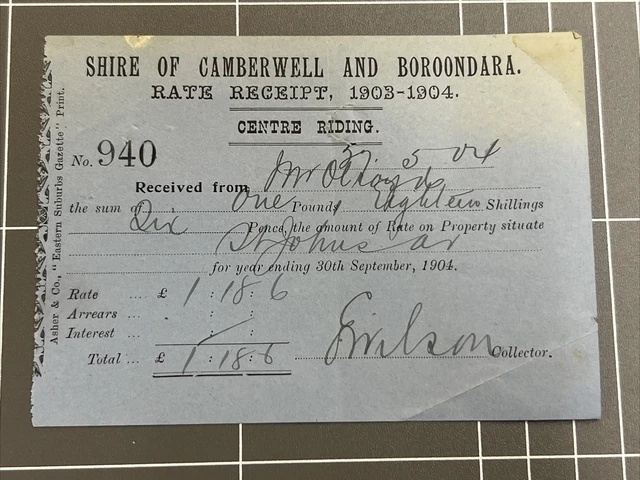 SHIRE OF CAMBERWELL AND BOROONDARA.
RATE RECEIPT, 1903-1904.
CENTRE RIDING.
No. 940
5 04
Received from Mr
the sum of One Pound, Eighteen Shillings
Six Pence, the amount of Rate on Property situate
St Johns av
for year ending 30th September, 1904.
Rate ... £ 1 : 18 : 6
Arrears ... : :
Interest ... : :
Total ... £ 1 : 18 : 6
EWilson Collector.
Asher & Co., "Eastern Suburbs Gazette" Print.